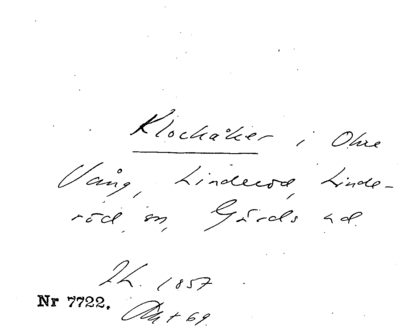 Klockåker i Ohre
Vång, Linderöd, Linde-
röd sn, Gärds hd.
Lh. 1857
Nr 7722.
Akt 69.